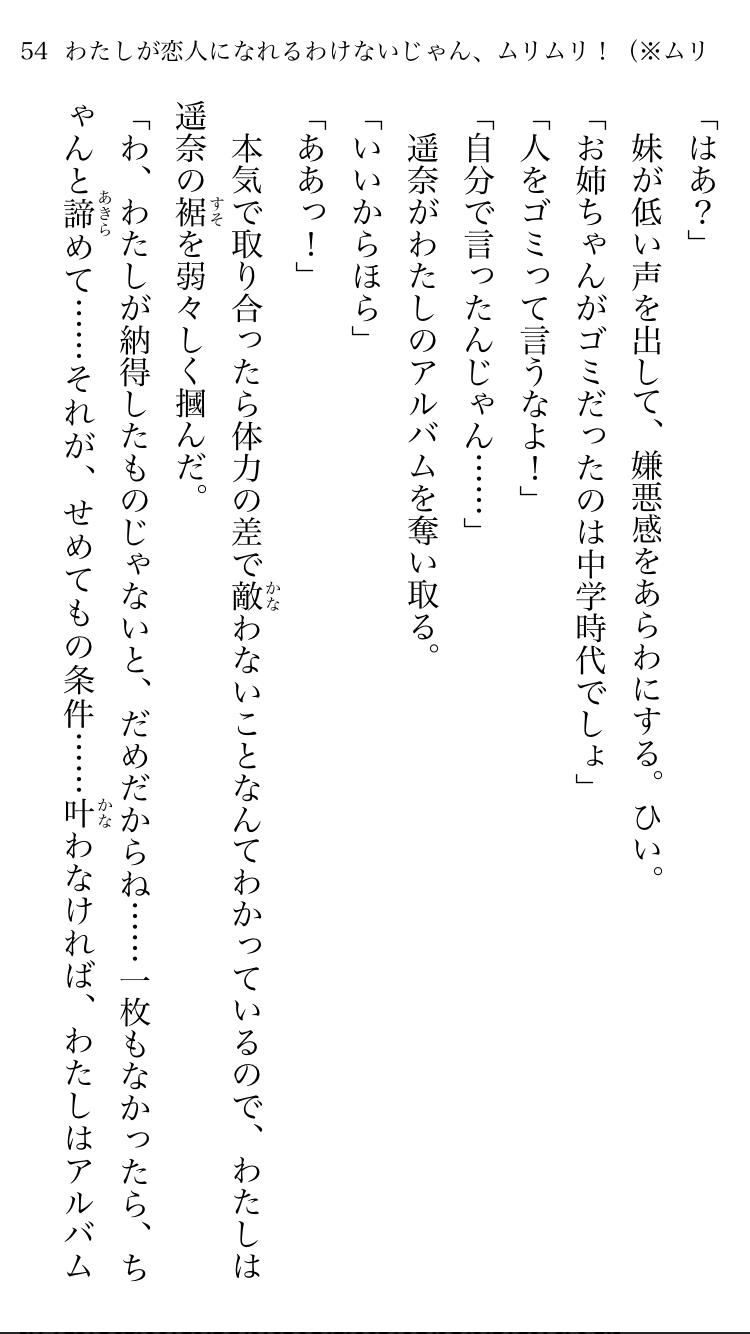 54 わたしが恋人になれるわけないじゃん、ムリムリ！（※ムリ
「はあ？」
妹が低い声を出して、嫌悪感をあらわにする。ひい。
「お姉ちゃんがゴミだったのは中学時代でしょ」
「人をゴミって言うなよ！」
「自分で言ったんじゃん……」
遥奈がわたしのアルバムを奪い取る。
「いいからほら」
「ああっ！」
本気で取り合ったら体力の差で敵わないことなんてわかっているので、わたしは
かな
遥奈の裾を弱々しく摑んだ。
すそ
「わ、わたしが納得したものじゃないと、だめだからね……一枚もなかったら、ち
ゃんと諦めて……それが、せめてもの条件……叶わなければ、わたしはアルバム
あきら
かな